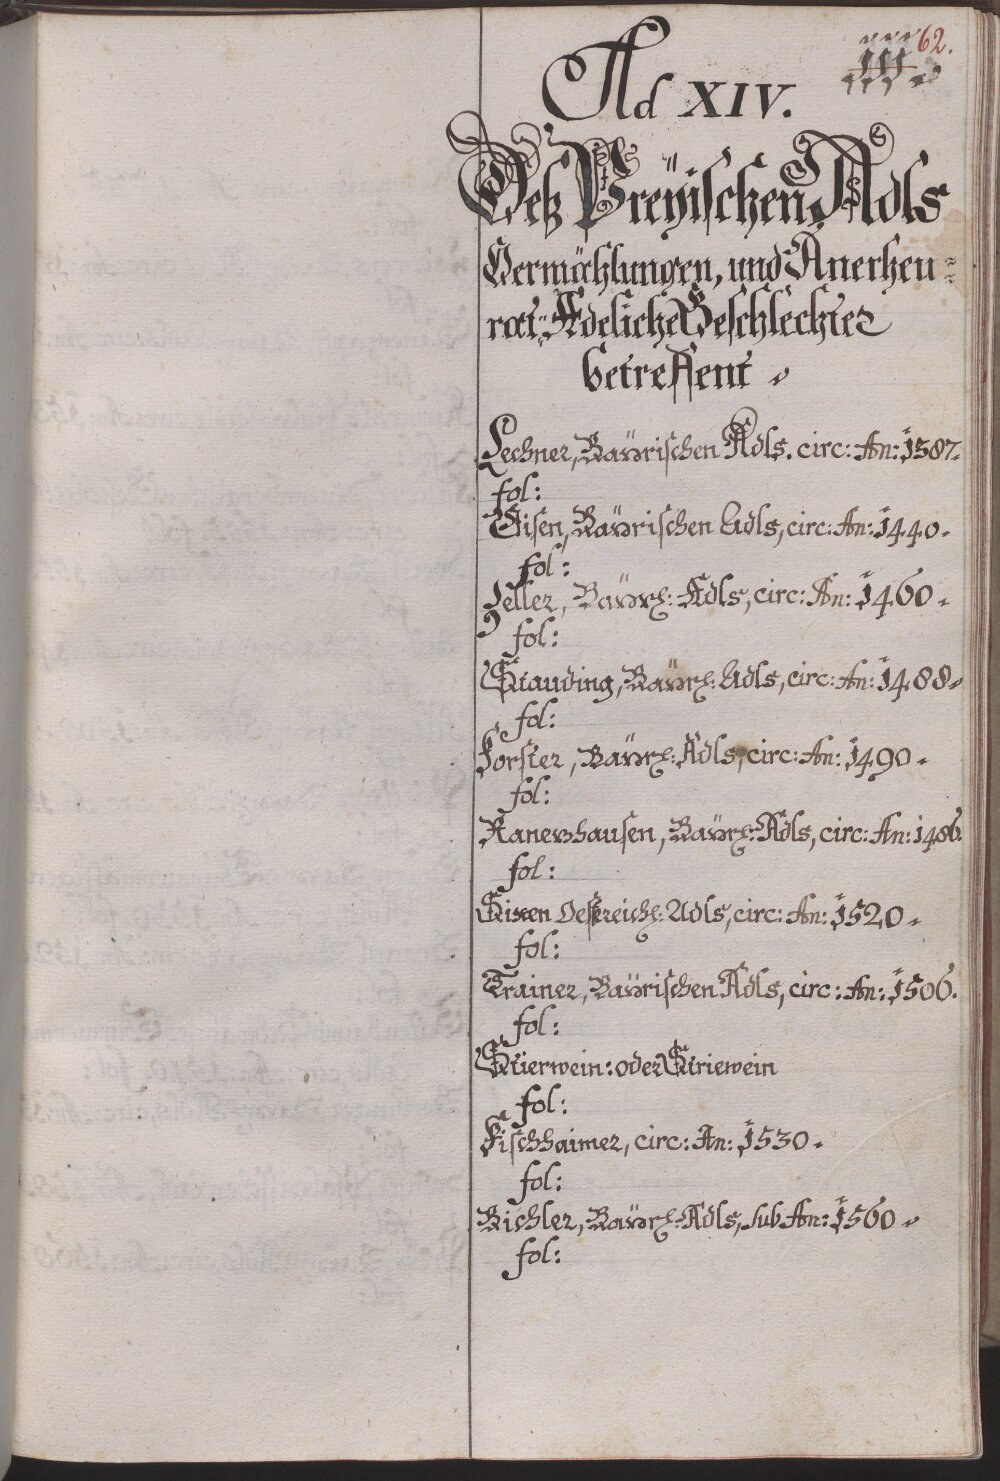 62.
Ad XIV.
Deß Preÿischen Adls
Vermählungen, und Anerheu=
rat: Adeliche Geschlechter
betreffent
Lechner, Baÿrischen Adls. circ: An: 1387.
fol:
Eisen, Baÿrischen Adls, circ: An: 1440.
fol:
Zeller, Baÿr: Adls, circ: An: 1460.
fol:
Stauding, Baÿr: Adls, circ: An: 1488.
fol:
Forster, Baÿr: Adls, circ: An: 1490.
fol:
Ranershausen, Baÿr: Adls, circ: An: 1486.
fol:
Sixen Oestreich: Adls, circ: An: 1520.
fol:
Trainer, Baÿrischen Adls, circ: An: 1506.
fol:
Stierwein: oder Striewein
fol:
Fischhaimer, circ: An: 1530.
fol:
Bichler, Baÿr: Adls, sub An: 1560.
fol: